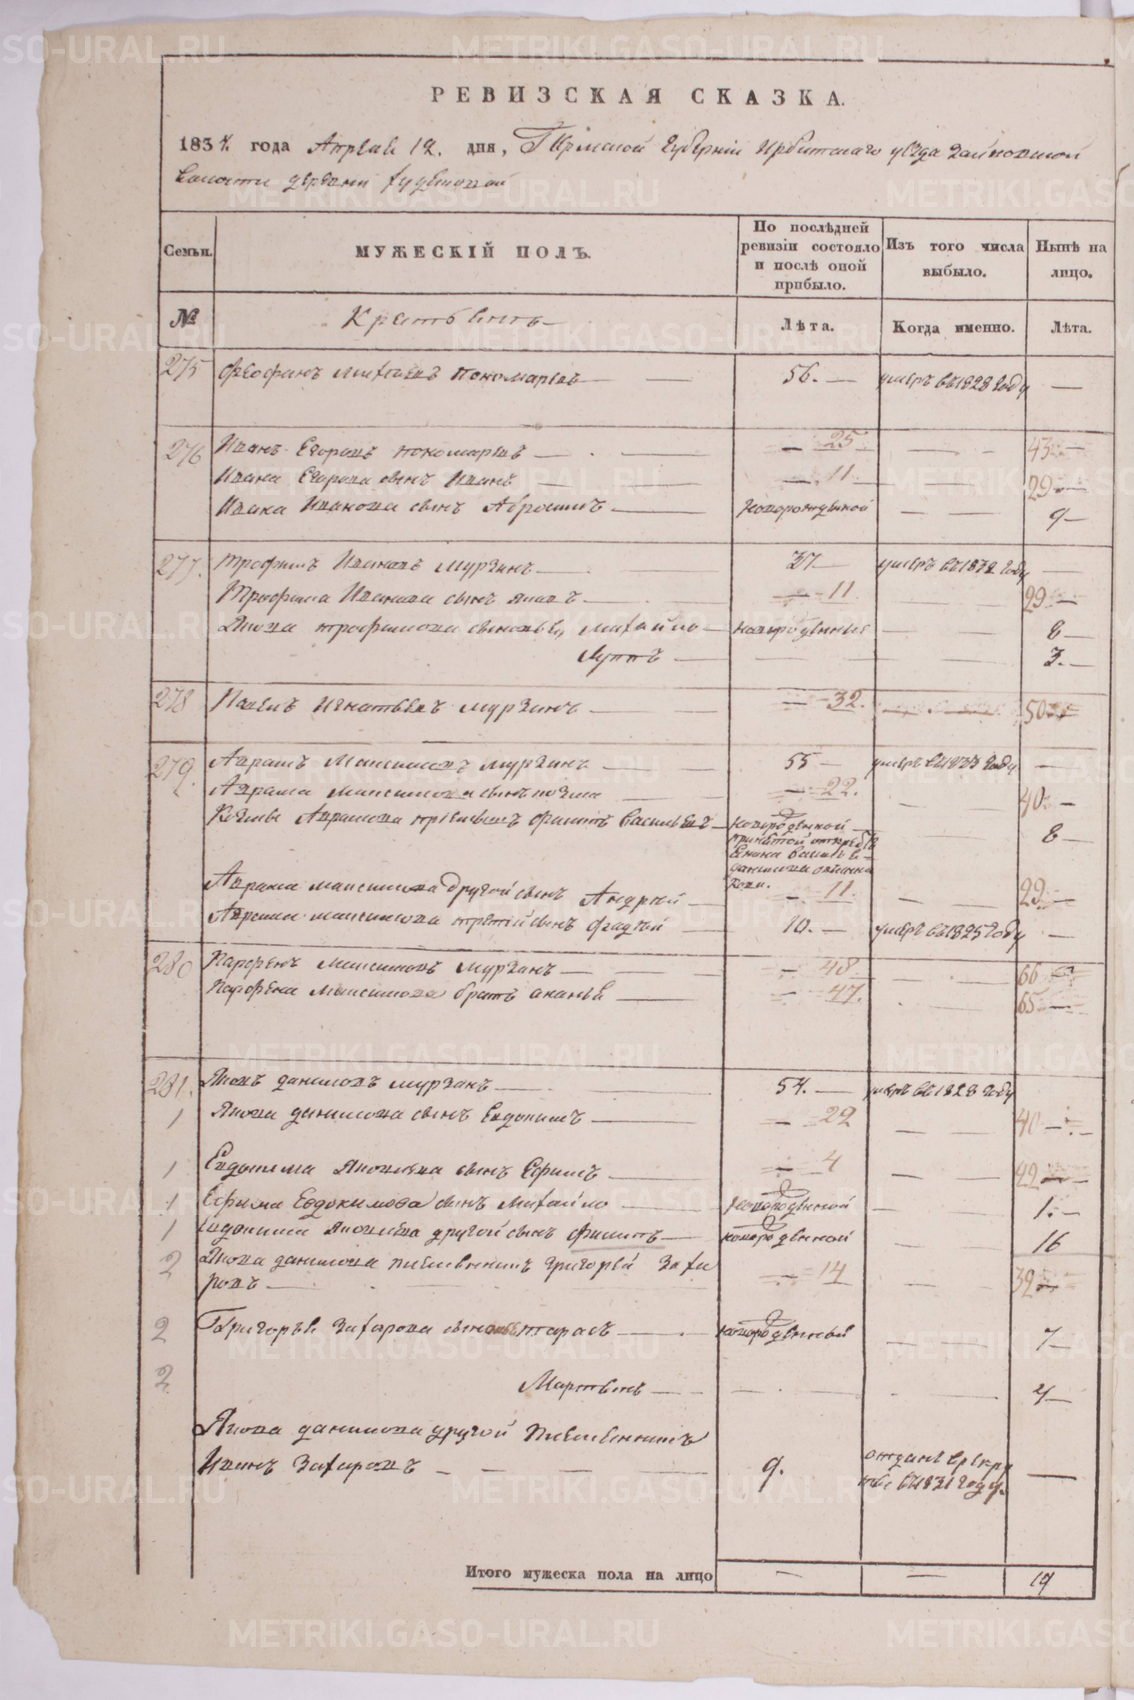 РЕВИЗСКАЯ СКАЗКА.
1834 года Апреля 12 дня, Пермской Губернии Ирбитскаго уезда Зайковской
волости деревни
Семьи. МУЖЕСКІЙ ПОЛЪ. По послѣдней ревизіи состояло и послѣ оной прибыло. Изъ того числа выбыло. Нынѣ на лицо.
№ Крестьянъ Лѣта. Когда именно. Лѣта.
275 Феофанъ Пономаревъ 56. умеръ въ 1828 году
276 Иванъ Егоровъ Пономаревъ 25 43
Ивана Егорова сынъ Иванъ 11 29
Ивана Иванова сынъ Абросимъ новорожденной 9
277. Трофимъ Ивановъ Мурзинъ 37 умеръ въ 1832 году
Трофима Иванова сынъ Яковъ 11 29
Якова Трофимова сыновья, Михайло новорожденные 8
Луппъ 3.
278 Павелъ Игнатьевъ Мурзинъ 32. 50
279. Аврамъ Максимовъ Мурзинъ 55 умеръ въ 1833 году
Аврама Максимова сынъ Козма 22. 40
Козмы Аврамова приемышъ Филипъ Васильевъ новорожденной 8
Аврама Максимова другой сынъ Андрей 11 29
Аврама Максимова третей сынъ Фадей 10. умеръ въ 1825 году
280 Парфенъ Максимовъ Мурзинъ 48 66
Парфена Максимова братъ Ананья 47. 65
281. Яковъ Даниловъ Мурзинъ 54. умеръ въ 1828 году
1 Якова Данилова сынъ Евдокимъ 22 40
1 Евдокима Яковлева сынъ Ефимъ 4 22
1 Ефима Евдокимова сынъ Михайло новорожденной 1.
1 Евдокима Яковлева другой сынъ Филипъ новорожденной 16
2 Якова Данилова племянникъ Григорей Заха
ровъ 14 32
2 Григорья Захарова сыновья Тарасъ новорожденные 7
2 Мартынъ 4
Якова Данилова другой племянникъ
Иванъ Захаровъ 9. отданъ в рекру
ты въ 1831 году.
Итого мужеска пола на лицо 19
METRIKI.GASO-URAL.RU